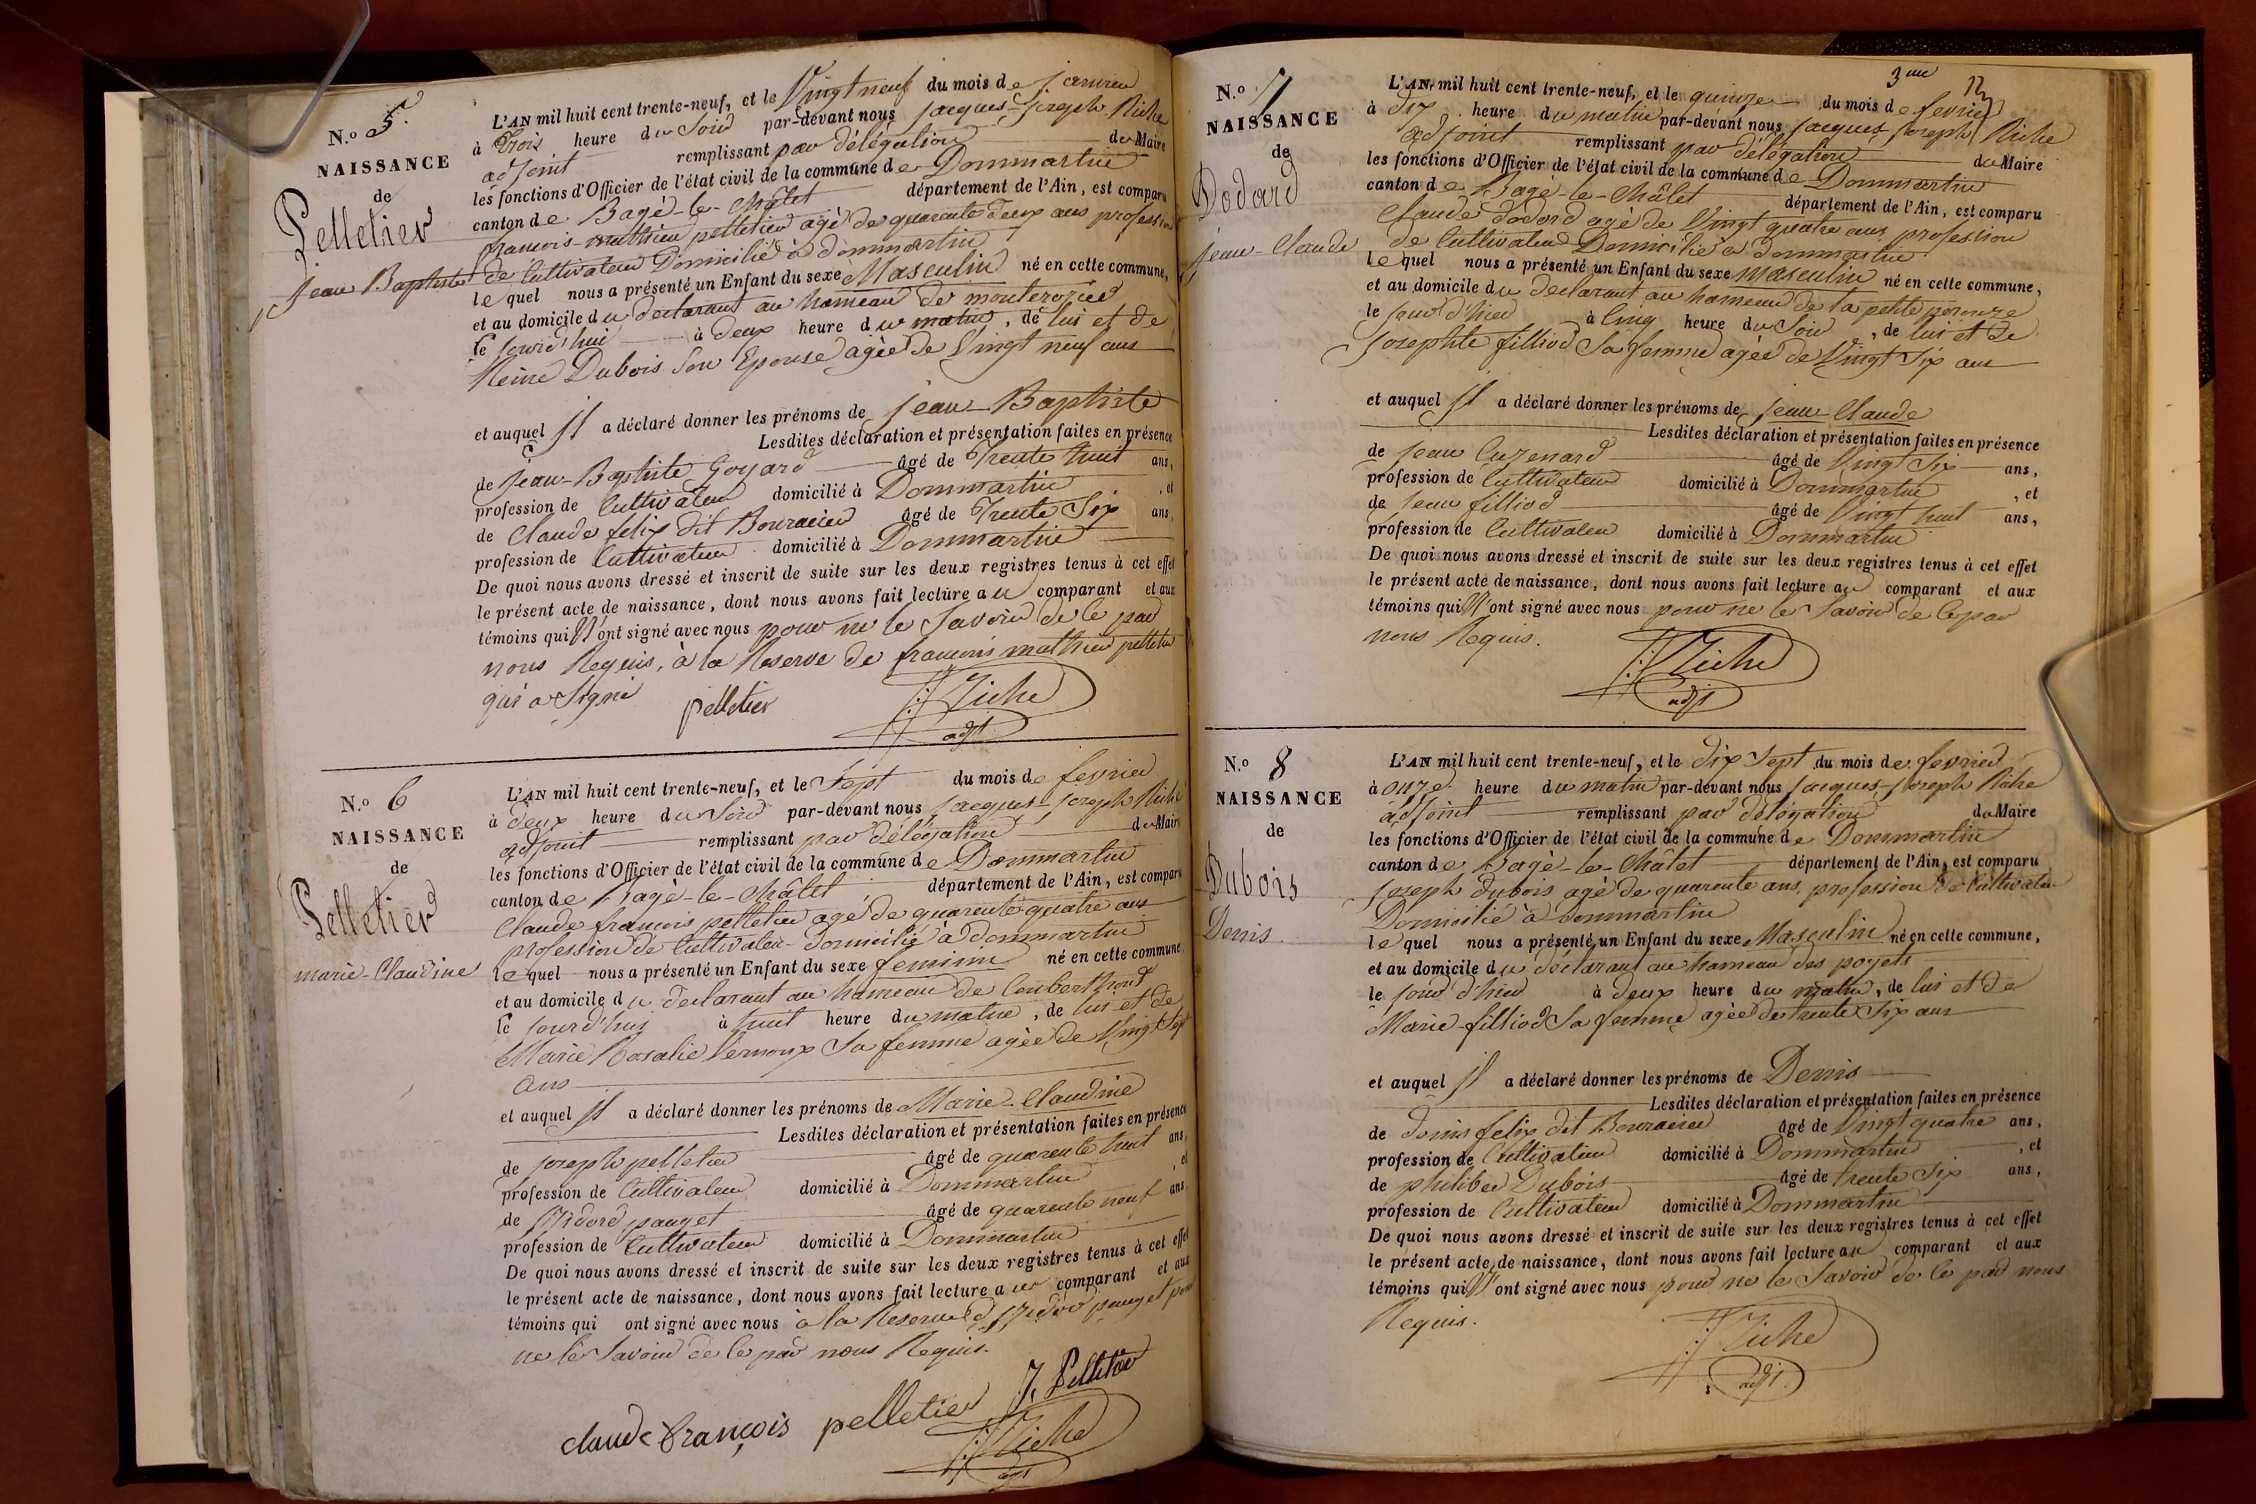 N.o 5.
NAISSANCE
de
Pelletier
jean Baptiste
L'AN mil huit cent trente-neuf, et le Vingt neuf du mois de janvier
à Trois heure du Soir par-devant nous jacques-joseph Riche
adjoint remplissant par délégation du Maire
les fonctions d'Officier de l'état civil de la commune de Dommartin
canton de Bagé-le-Châtel département de l'Ain, est comparu
françois-mathieu pelletier agé de quarante deux ans profession
de Cultivateur Domicilié à dommartin
lequel nous a présenté un Enfant du sexe Masculin né en cette commune,
et au domicile du declarant au hameau de
le jourd'hui à deux heure du matin, de lui et de
Reine Dubois Son Epouse agée de Vingt neuf ans
et auquel Il a déclaré donner les prénoms de jean-Baptiste
Lesdites déclaration et présentation faites en présence
de jean-Baptiste Goyard âgé de Trente huit ans,
profession de Cultivateur domicilié à Dommartin, et
de Claude felix dit Bouracier âgé de Trente Six ans
profession de Cultivateur domicilié à Dommartin
De quoi nous avons dressé et inscrit de suite sur les deux registres tenus à cet effet
le présent acte de naissance, dont nous avons fait lecture au comparant et aux
témoins qui N'ont signé avec nous pour ne le Savoir de ce par
nous Requis, à la Reserve de francois mathieu pelletier
qui a Signé
pelletier
JJ Riche
adjt
N.o 6
NAISSANCE
de
Pelletier
marie-Claudine
L'AN mil huit cent trente-neuf, et le Sept du mois de fevrier
à deux heure du Soir par-devant nous jacques-joseph Riche
adjoint remplissant par délégation du Maire
les fonctions d'Officier de l'état civil de la commune de Dommartin
canton de Bagé-le-Châtel département de l'Ain, est comparu
Claude francois pelletier agé de quarente quatre ans
profession de Cultivateur domicilié à dommartin
lequel nous a présenté un Enfant du sexe feminin né en cette commune
et au domicile du declarant au hameau de Couberthoud
le jourd'hui à huit heure du matin, de lui et de
Marie Rosalie Vernoux Sa femme agée de Vingt Sept
ans
et auquel Il a déclaré donner les prénoms de Marie-Claudine
Lesdites déclaration et présentation faites en présence
de joseph pelletier âgé de quarente huit ans,
profession de Cultivateur domicilié à Dommartin, et
de Isidore pauget âgé de quarente neuf ans
profession de Cultivateur domicilié à Dommartin
De quoi nous avons dressé et inscrit de suite sur les deux registres tenus à cet effet
le présent acte de naissance, dont nous avons fait lecture au comparant et aux
témoins qui ont signé avec nous à la Reserve d'Isidor pauget pour
ne le Savoir de ce par nous Requis.
claude françois pelletier J. Pelletier
JJ Riche
adjt
3me 13
N.o 7
NAISSANCE
de
Dodard
jean-Claude
L'AN mil huit cent trente-neuf, et le quinze du mois de fevrier
à dix heure du matin par-devant nous jacques joseph Riche
adjoint remplissant par délégation du Maire
les fonctions d'Officier de l'état civil de la commune de Dommartin
canton de Bagé-le-Châtel département de l'Ain, est comparu
Claude dodard agé de Vingt quatre ans profession
de Cultivateur Domicilié à dommartin
lequel nous a présenté un Enfant du sexe masculin né en cette commune,
et au domicile du declarant au hameau de la petite peronze
le jour d'hier à Cinq heure du Soir, de lui et de
josephte filliod Sa femme agée de Vingt Six ans
et auquel Il a déclaré donner les prénoms de jean-Claude
Lesdites déclaration et présentation faites en présence
de jean Cuzenard âgé de Vingt Six ans,
profession de Cultivateur domicilié à Dommartin, et
de jean filliod âgé de Vingt huit ans,
profession de Cultivateur domicilié à Dommartin
De quoi nous avons dressé et inscrit de suite sur les deux registres tenus à cet effet
le présent acte de naissance, dont nous avons fait lecture au comparant et aux
témoins qui N'ont signé avec nous pour ne le Savoir de ce par
nous Requis.
JJ Riche
adjt
N.o 8
NAISSANCE
de
Dubois
Denis.
L'AN mil huit cent trente-neuf, et le dix Sept du mois de fevrier
à onze heure du matin par-devant nous jacques-joseph Riche
adjoint remplissant par délégation du Maire
les fonctions d'Officier de l'état civil de la commune de Dommartin
canton de Bagé-le-Châtel département de l'Ain, est comparu
joseph dubois agé de quarente ans, profession de Cultivateur
Domicilié à dommartin
lequel nous a présenté un Enfant du sexe Masculin né en cette commune,
et au domicile du declarant au hameau des poyets
le jour d'hier à deux heure du matin, de lui et de
Marie filliod Sa femme agée de trente Six ans
et auquel Il a déclaré donner les prénoms de Denis
Lesdites déclaration et présentation faites en présence
de denis felix dit Bouracier âgé de Vingt quatre ans,
profession de Cultivateur domicilié à Dommartin, et
de philiber Dubois âgé de trente Six ans,
profession de Cultivateur domicilié à Dommartin
De quoi nous avons dressé et inscrit de suite sur les deux registres tenus à cet effet
le présent acte de naissance, dont nous avons fait lecture au comparant et aux
témoins qui N'ont signé avec nous pour ne le Savoir de ce par nous
Requis.
JJ Riche
adjt.